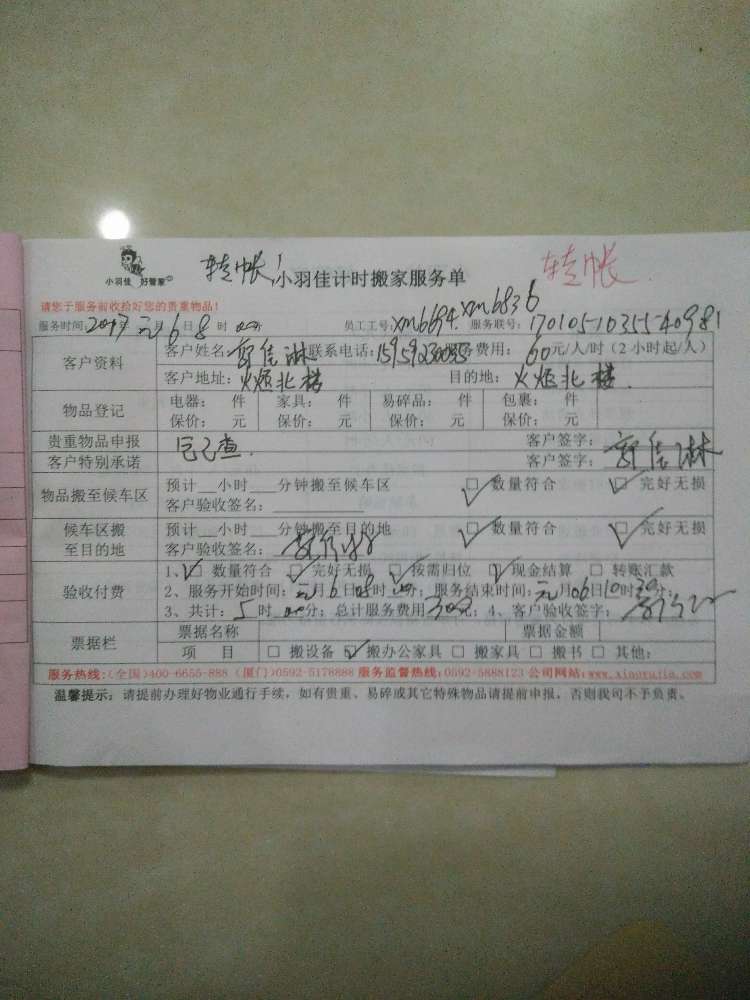 小羽佳 好管家
转帐 小羽佳计时搬家服务单 转帐
请您于服务前收拾好您的贵重物品！
服务时间：2017年元月6日8时00分 员工工号：xm6694. xm6836 服务联号：1701051035540981
客户资料 客户姓名： 佳淋 联系电话： 服务费用：60元/人/时（2小时起/人）
客户地址：火炬北楼 目的地：火炬北楼.
物品登记 电器： 件 家具： 件 易碎品： 件 包裹： 件
保价： 元 保价： 元 保价： 元 保价： 元
贵重物品申报 已查. 客户签字：
客户特别承诺 客户签字： 佳淋
物品搬至候车区 预计__小时__分钟搬至候车区 ☑ 数量符合 ☑ 完好无损
客户验收签名：
候车区搬至目的地 预计__小时__分钟搬至目的地 ☑ 数量符合 ☑ 完好无损
客户验收签名：
验收付费 1、☑ 数量符合 ☑ 完好无损 ☑ 按需归位 ☑ 现金结算 □ 转账汇款
2、服务开始时间：元月6日08时00分；服务结束时间：元月06日10时30分；
3、共计：5时00分；总计服务费用300元；4、客户验收签字：
票据栏 票据名称 票据金额
项 目 □ 搬设备 ☑ 搬办公家具 □ 搬家具 □ 搬书 □ 其他：
服务热线：(全国)400-6655-888 (厦门)0592-5178888 服务监督热线：0592-5888123 公司网站：www.xiaoyujia.com
温馨提示：请提前办理好物业通行手续，如有贵重、易碎或其它特殊物品请提前申报，否则我司不予负责。